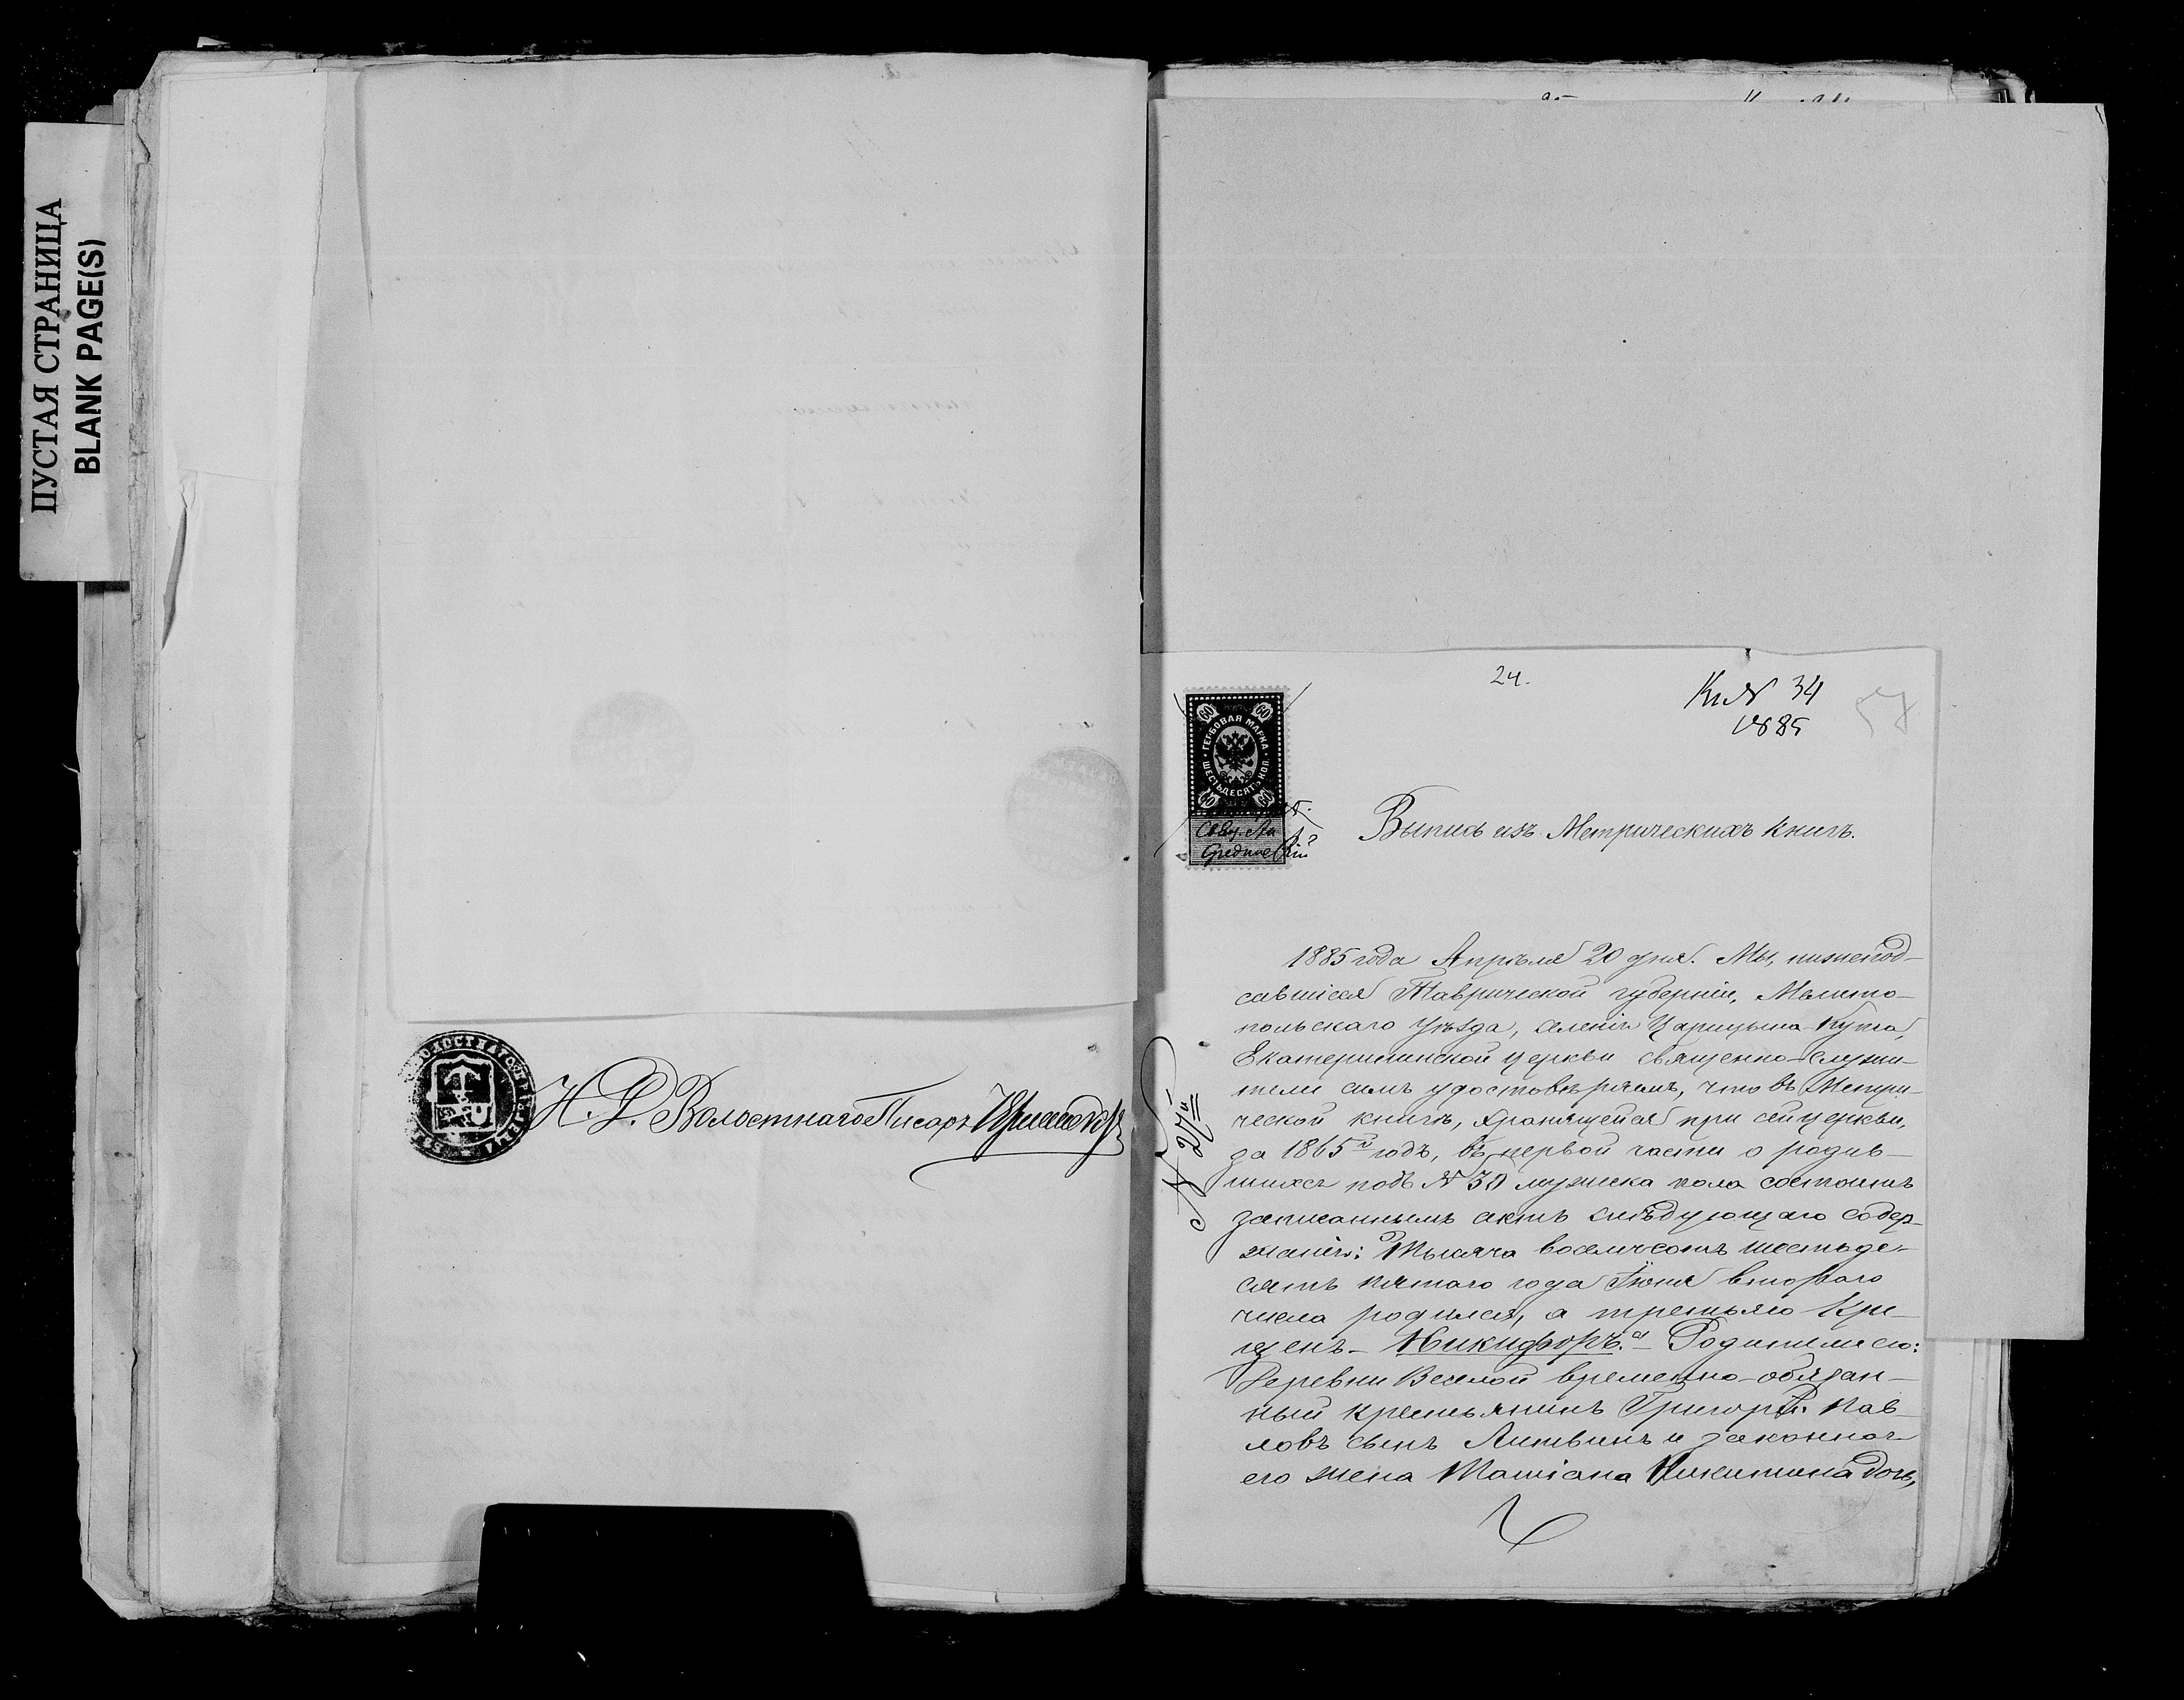 ПУСТАЯ СТРАНИЦА
BLANK PAGE(S)
Н. Д. Волостнаго Писарь
24.
Кн № 34
1885
57
60 60
ГЕРБОВАЯ МАРКА
ШЕСТЬДЕСЯТЪ КОП.
60 60
Выпись изъ Метрическихъ книгъ.
№ 27й
1885 года Апрѣля 20 дня. Мы, нижепод-
савшіеся Таврической губерніи, Мелито-
польскаго уѣзда, селенія Царицына Кута,
Екатерининской церкви священно-служи-
тели симъ удостовѣряемъ, что въ Метри-
ческой книгѣ, хранящейся при сей церкви,
за 1865й годъ, въ первой части о родив-
шихся подъ № 30 мужеска пола состоитъ
записаннымъ актъ слѣдующаго содер-
жанія: Тысяча восемьсотъ шестьде-
сятъ пятаго года Іюня втораго
числа родился, а третьяго кре-
щенъ – Никифоръ. – Родители его:
Деревни Веселой временно-обязан-
ный крестьянинъ Григорій Пав-
ловъ сынъ Литвинъ и законная
его жена Татіана Никитина дочь,